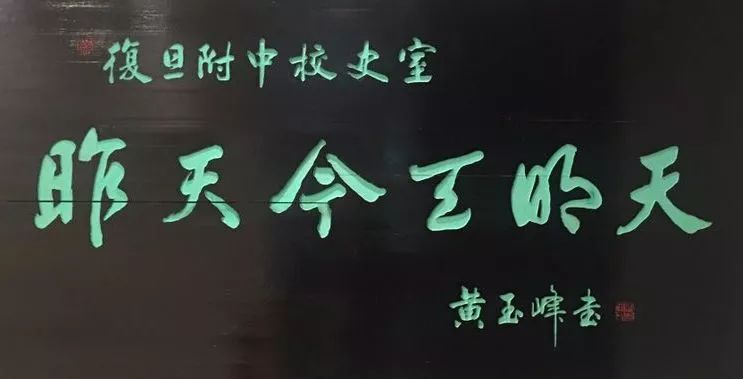 復旦附中校史室
昨天今天明天
黄玉峰书